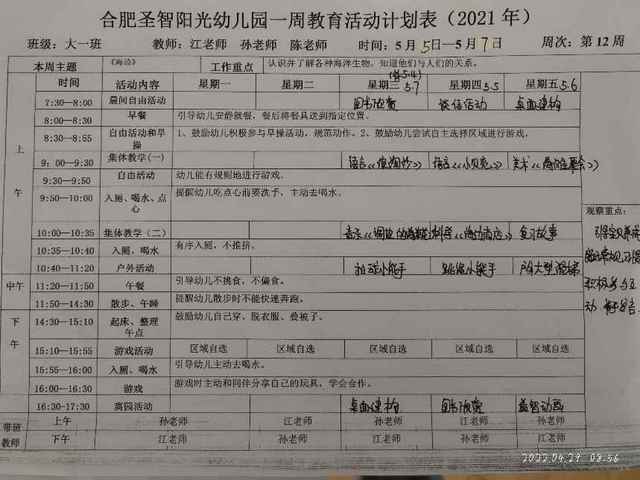 合肥圣智阳光幼儿园一周教育活动计划表（2021 年）
班级：大一班 教师：江老师 孙老师 陈老师 时间：5 月 5日—5 月 7日 周次：第 12 周
本周主题 《海洋》 工作重点 认识并了解各种海洋生物，知道他们与人们的关系。
时间 活动内容 星期一 星期二 星期三 星期四 5.5 星期五 5.6
7:30—8:00 晨间自由活动 图书欣赏 谈话活动 桌面建构
上午
8:00—8:30 早餐 引导幼儿安静就餐，餐后将餐具送到指定位置。
8:30—8:55 自由活动和早操 1、鼓励幼儿积极参与早操活动，规范动作。2、鼓励幼儿尝试自主选择区域进行游戏。
9：00—9:30 集体教学(一) 美术
9:30—9:50 自由活动 幼儿能有规则地进行游戏。
9:50—10:00 入厕、喝水、点心 提醒幼儿吃点心前要洗手，主动去喝水。
观察重点：
10:00—10:35 集体教学（二） 音乐 复习故事
10:35—10:40 入厕，喝水 有序入厕，不推挤。
10:40—11:20 户外活动 拍球小能手 跳绳小能手 大型滑梯
中午 11:20—11:50 午餐 引导幼儿不挑食，不偏食。
11:50—14:30 散步、午睡 提醒幼儿散步时不能快速奔跑。
下午
14:30—15:10 起床、整理 午点 鼓励幼儿自己穿、脱衣服、叠被子。
15:10—15:55 游戏活动 区域自选 区域自选 区域自选 区域自选 区域自选
15:55—16:00 入厕，喝水 引导幼儿主动去喝水。
16:00—16:30 游戏 游戏时主动和同伴分享自己的玩具，学会合作。
16:30-17:30 离园活动 桌面建构 图书欣赏 益智动画
带班教师 上午 孙老师 江老师 孙老师 江老师 孙老师
下午 江老师 孙老师 江老师 孙老师 江老师
2022.04.29 08:56